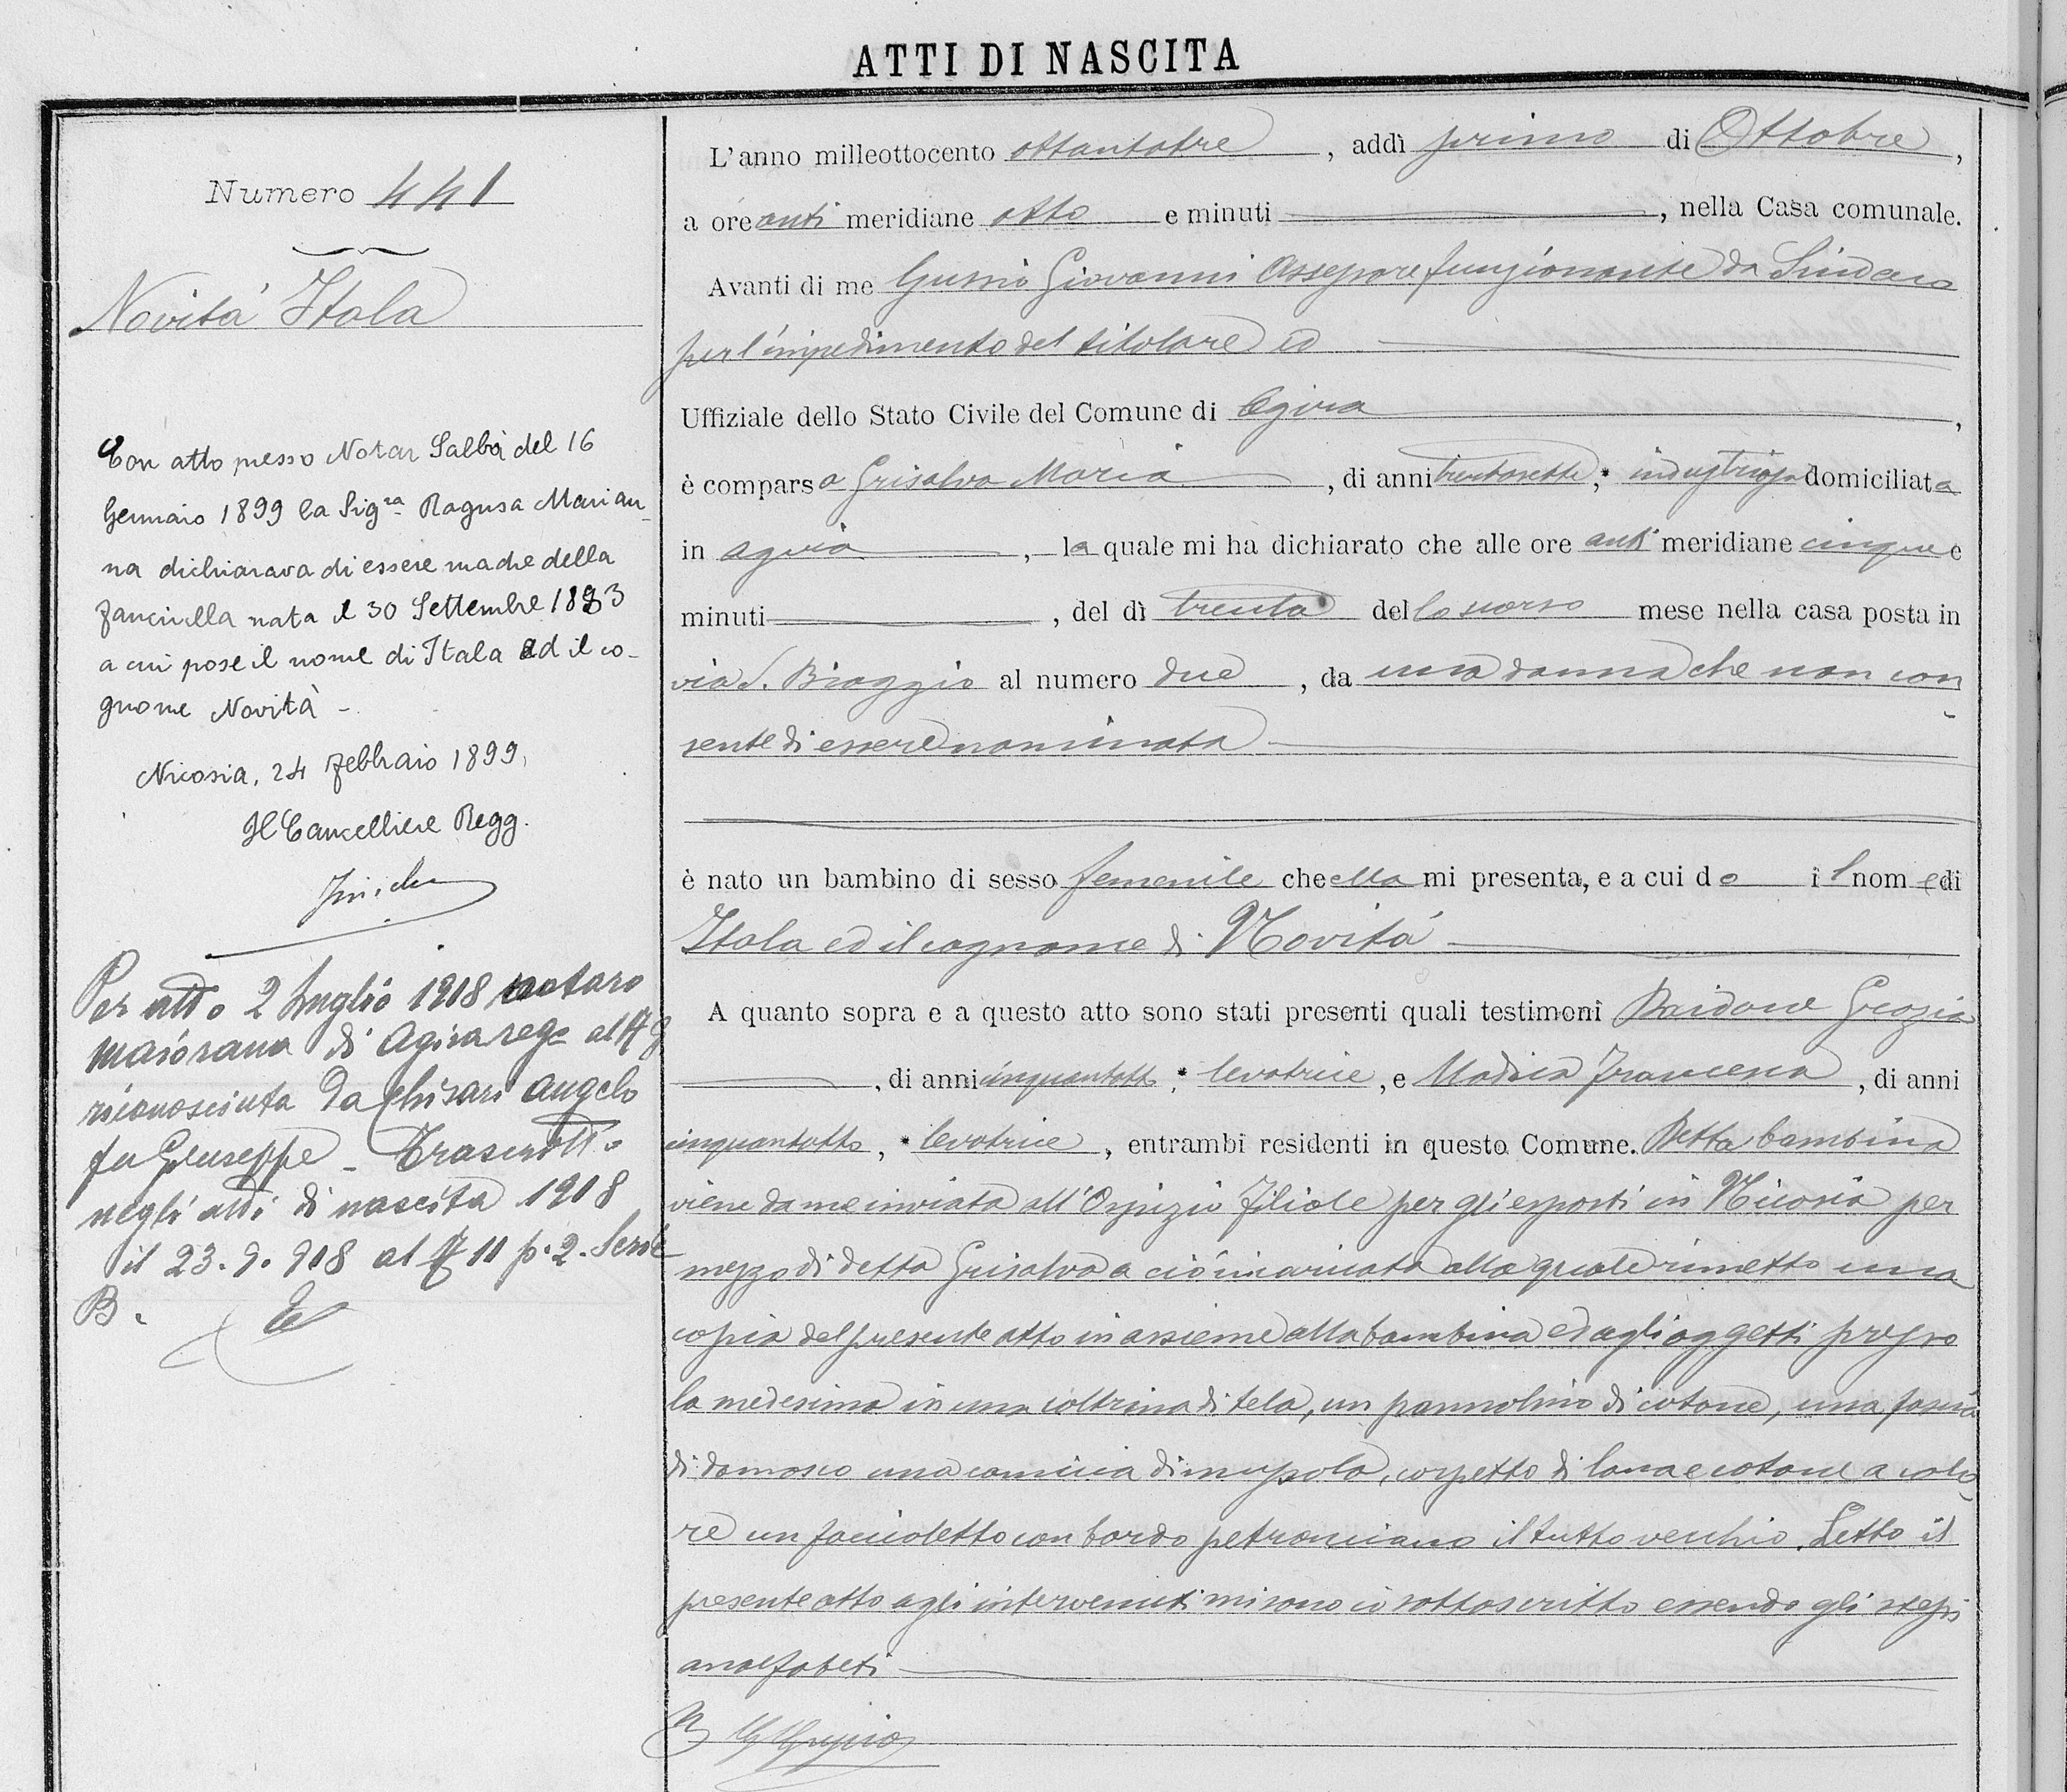 ATTI DI NASCITA
Numero 441
Novità Itala
Con atto presso Notar Salbà del 16
Gennaio 1899 la Sigra Ragusa Marian-
na dichiarava di essere madre della
fanciulla nata il 30 Settembre 1883
a cui pose il nome di Itala ed il co-
gnome Novità -
Nicosia, 24 Febbraio 1899,
Il Cancelliere Regg.
Per atto 2 Luglio 1918 notaro
Maiorana di Agira rego al N 8
riconosciuta da Chisari Angelo
fu Giuseppe - Trascritto
negli atti di nascita 1918
il 23. 9. 918 al N 11 p. 2. Serie
B.
L'anno milleottocento ottantatre, addì primo di Ottobre,
a ore anti meridiane otto e minuti, nella Casa comunale.
Avanti di me Giovanni Assessore funzionante da Sindaco
per l'impedimento del titolare ed
Uffiziale dello Stato Civile del Comune di Agira,
è comparsa Grisalva Maria, di anni trentasette, industriosa domiciliata
in Agira, la quale mi ha dichiarato che alle ore anti meridiane cinque e
minuti, del dì trenta dello scorso mese nella casa posta in
via S. Biaggio al numero due, da una donna che non con
sente di essere nominata
è nato un bambino di sesso femenile che ella mi presenta, e a cui do il nome di
Itala ed il cognome di Novità
A quanto sopra e a questo atto sono stati presenti quali testimoni Grazia
, di anni cinquantotto, levatrice, e Modica Francesca, di anni
cinquantotto, levatrice, entrambi residenti in questo Comune. Detta bambina
viene da me inviata all'Ospizio filiale per gli esposti in Nicosia per
mezzo di detta Grisalva a ciò incaricata alla quale rimetto una
copia del presente atto in assieme alla bambina ed agli oggetti presso
la medesima in una coltrina di tela, un pannolino di cotone, una fascia
di damasco una camicia di mussola, corpetto di lana e cotone a colo
re un faccioletto con bordo petronciano il tutto vecchio. Letto il
presente atto agli intervenuti mi sono io sottoscritto essendo gli stessi
analfabeti